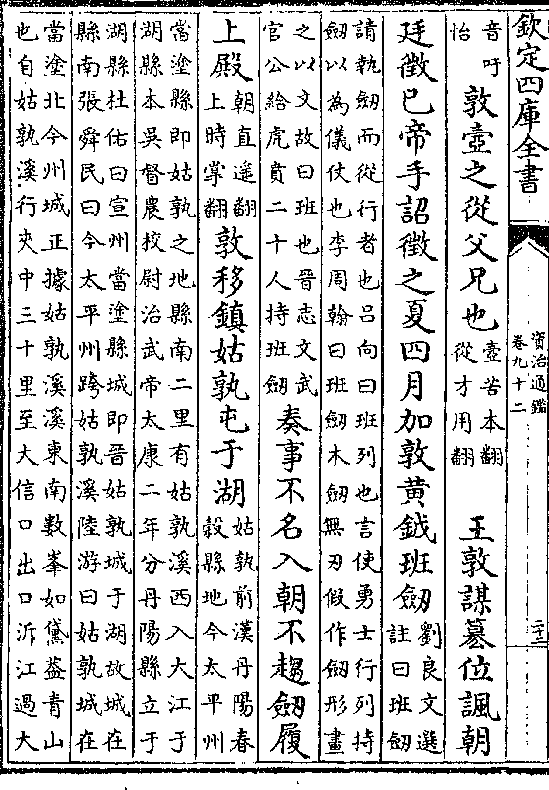 欽定四庫全書
資治通鑑
卷九十二
音吁
怡
敦壼之從父兄也
壼苦本翻
從才用翻
王敦謀簒位諷朝
廷徵已帝手詔徵之夏四月加敦黄鉞班劔
劉良文選
註曰班劔
請執劔而從行者也吕向曰班列也言使勇士行列持
劔以為儀仗也李周翰曰班劔木劔無刃假作劔形畫
之以文故曰班也晉志文武
官公給虎賁二十人持班劔
奏事不名入朝不趨劔履
上殿
朝直遥翻
上時掌翻
敦移鎮姑孰屯于湖
姑孰前漢丹陽春
穀縣地今太平州
當塗縣即姑孰之地縣南二里有姑孰溪西入大江于
湖縣本吳督農校尉治武帝太康二年分丹陽縣立于
湖縣杜佑曰宣州當塗縣城即晉姑孰城于湖故城在
縣南張舜民曰今太平州跨姑孰溪陸游曰姑孰城在
當塗北今州城正據姑孰溪溪東南數峯如黛葢青山
也自姑孰溪行夾中三十里至大信口出口泝江過大